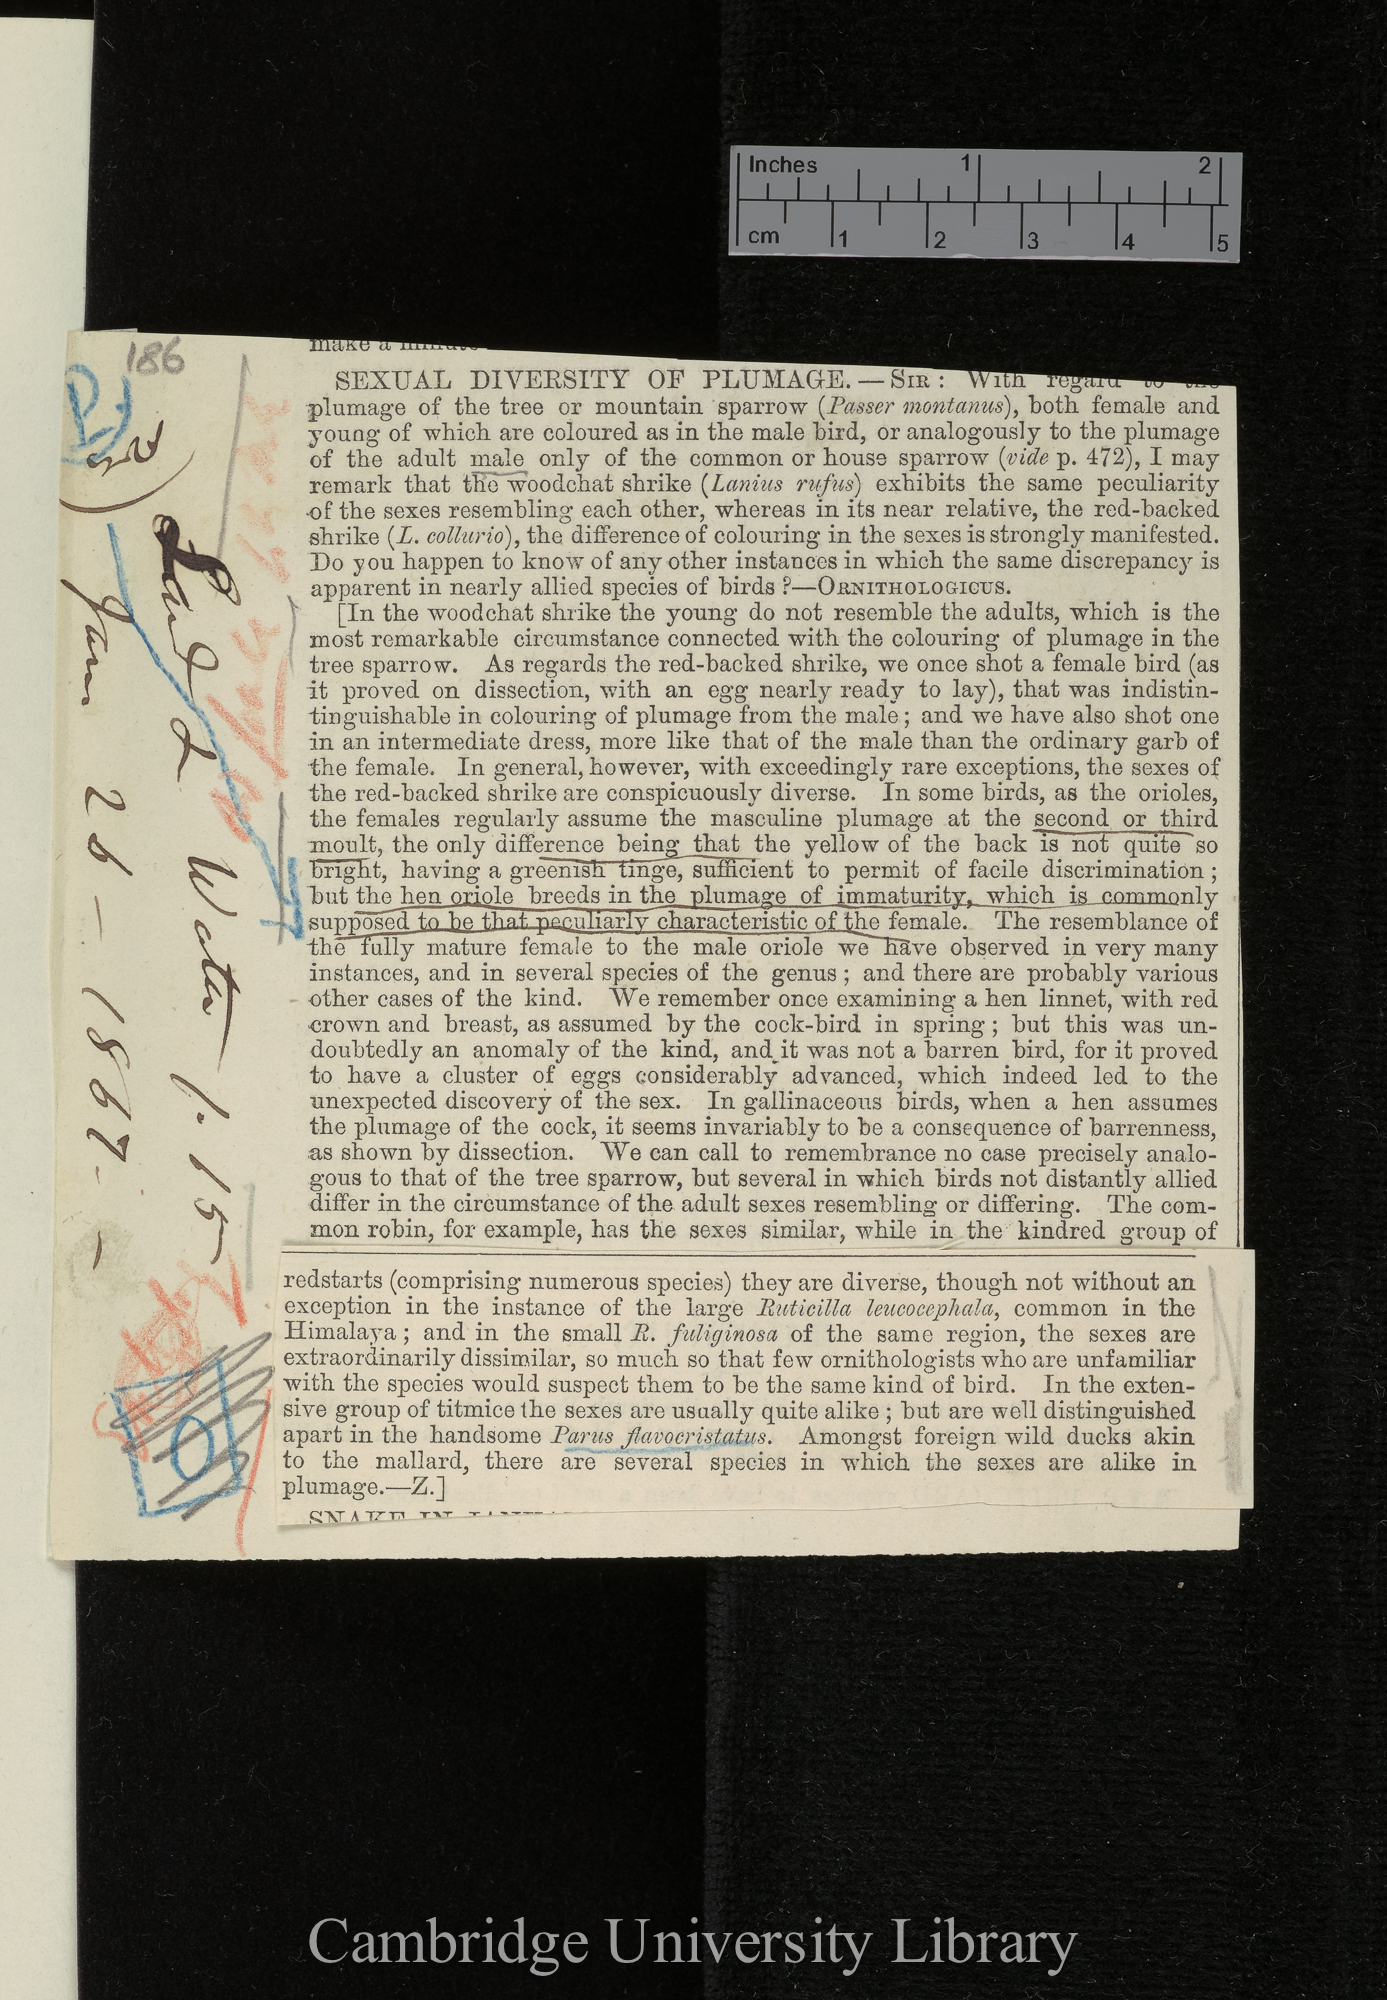 Inches 1 2
cm 1 2 3 4 5
186
make a minute
SEXUAL DIVERSITY OF PLUMAGE. — SIR: With regard to the
plumage of the tree or mountain sparrow (Passer montanus), both female and
young of which are coloured as in the male bird, or analogously to the plumage
of the adult male only of the common or house sparrow (vide p. 472), I may
remark that the woodchat shrike (Lanius rufus) exhibits the same peculiarity
of the sexes resembling each other, whereas in its near relative, the red-backed
shrike (L. collurio), the difference of colouring in the sexes is strongly manifested.
Do you happen to know of any other instances in which the same discrepancy is
apparent in nearly allied species of birds?—ORNITHOLOGICUS.
[In the woodchat shrike the young do not resemble the adults, which is the
most remarkable circumstance connected with the colouring of plumage in the
tree sparrow. As regards the red-backed shrike, we once shot a female bird (as
it proved on dissection, with an egg nearly ready to lay), that was indistin-
tinguishable in colouring of plumage from the male; and we have also shot one
in an intermediate dress, more like that of the male than the ordinary garb of
the female. In general, however, with exceedingly rare exceptions, the sexes of
the red-backed shrike are conspicuously diverse. In some birds, as the orioles,
the females regularly assume the masculine plumage at the second or third
moult, the only difference being that the yellow of the back is not quite so
bright, having a greenish tinge, sufficient to permit of facile discrimination;
but the hen oriole breeds in the plumage of immaturity, which is commonly
supposed to be that peculiarly characteristic of the female. The resemblance of
the fully mature female to the male oriole we have observed in very many
instances, and in several species of the genus; and there are probably various
other cases of the kind. We remember once examining a hen linnet, with red
crown and breast, as assumed by the cock-bird in spring; but this was un-
doubtedly an anomaly of the kind, and it was not a barren bird, for it proved
to have a cluster of eggs considerably advanced, which indeed led to the
unexpected discovery of the sex. In gallinaceous birds, when a hen assumes
the plumage of the cock, it seems invariably to be a consequence of barrenness,
as shown by dissection. We can call to remembrance no case precisely analo-
gous to that of the tree sparrow, but several in which birds not distantly allied
differ in the circumstance of the adult sexes resembling or differing. The com-
mon robin, for example, has the sexes similar, while in the kindred group of
redstarts (comprising numerous species) they are diverse, though not without an
exception in the instance of the large Ruticilla leucocephala, common in the
Himalaya; and in the small R. fuliginosa of the same region, the sexes are
extraordinarily dissimilar, so much so that few ornithologists who are unfamiliar
with the species would suspect them to be the same kind of bird. In the exten-
sive group of titmice the sexes are usually quite alike; but are well distinguished
apart in the handsome Parus flavocristatus. Amongst foreign wild ducks akin
to the mallard, there are several species in which the sexes are alike in
plumage.—Z.]
SNAKE IN JANU
Land & Water 1. 15
Jan 26 — 1867 —
Cambridge University Library